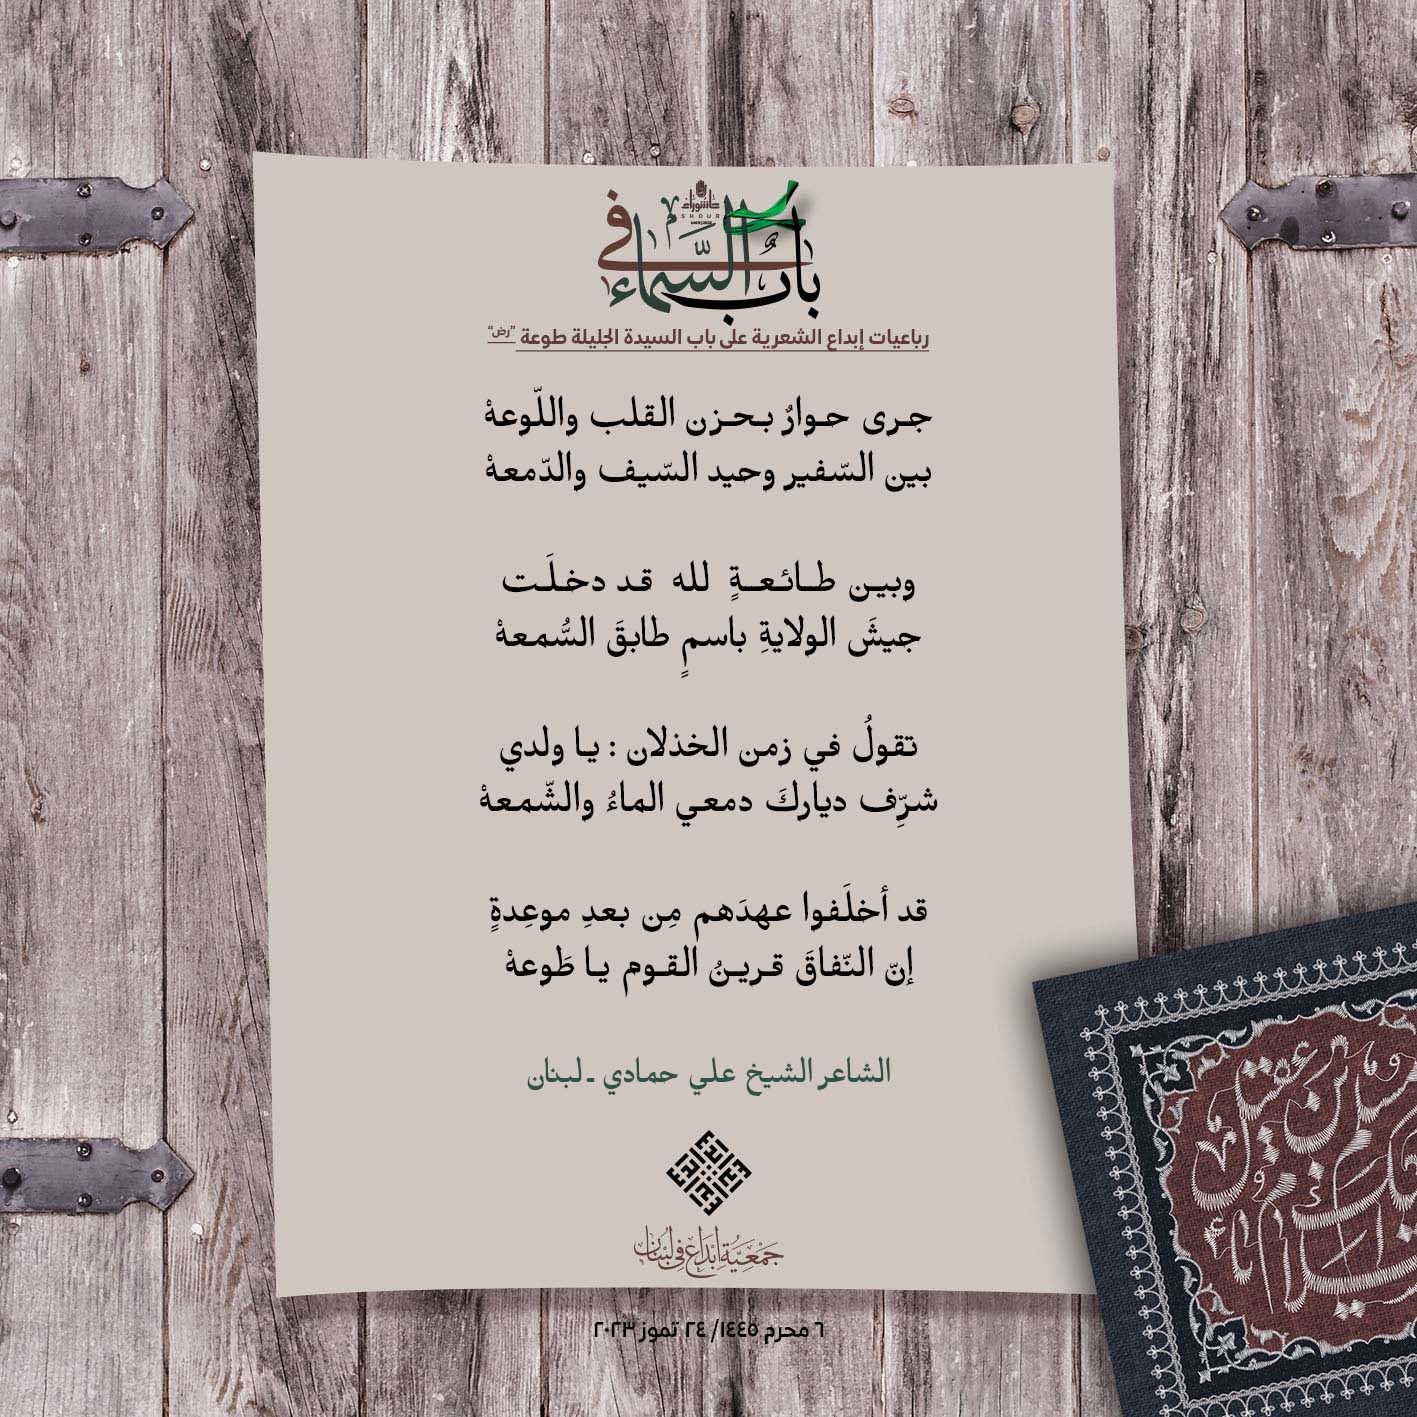 عاشوراء
في السَّماء بابٌ
رباعيات إبداع الشعرية على باب السيدة الجليلة طوعة "رض"
جرى حوارٌ بحزن القلب واللّوعهْ
بين السّفير وحيد السّيف والدّمعهْ
وبين طائعةٍ لله قد دخلَت
جيشَ الولايةِ باسمٍ طابقَ السُّمعهْ
تقولُ في زمن الخذلان : يا ولدي
شرِّف ديارك دمعي الماءُ والشّمعهْ
قد أخلَفوا عهدَهم مِن بعدِ موعِدةٍ
إنّ النّفاقَ قرينُ القوم يا طَوعهْ
الشاعر الشيخ علي حمادي - لبنان
جَمْعِيَّةُ إبْدَاع فِي لُبْنَان
٦ محرم ١٤٤٥/ ٢٤ تموز ٢٠٢٣